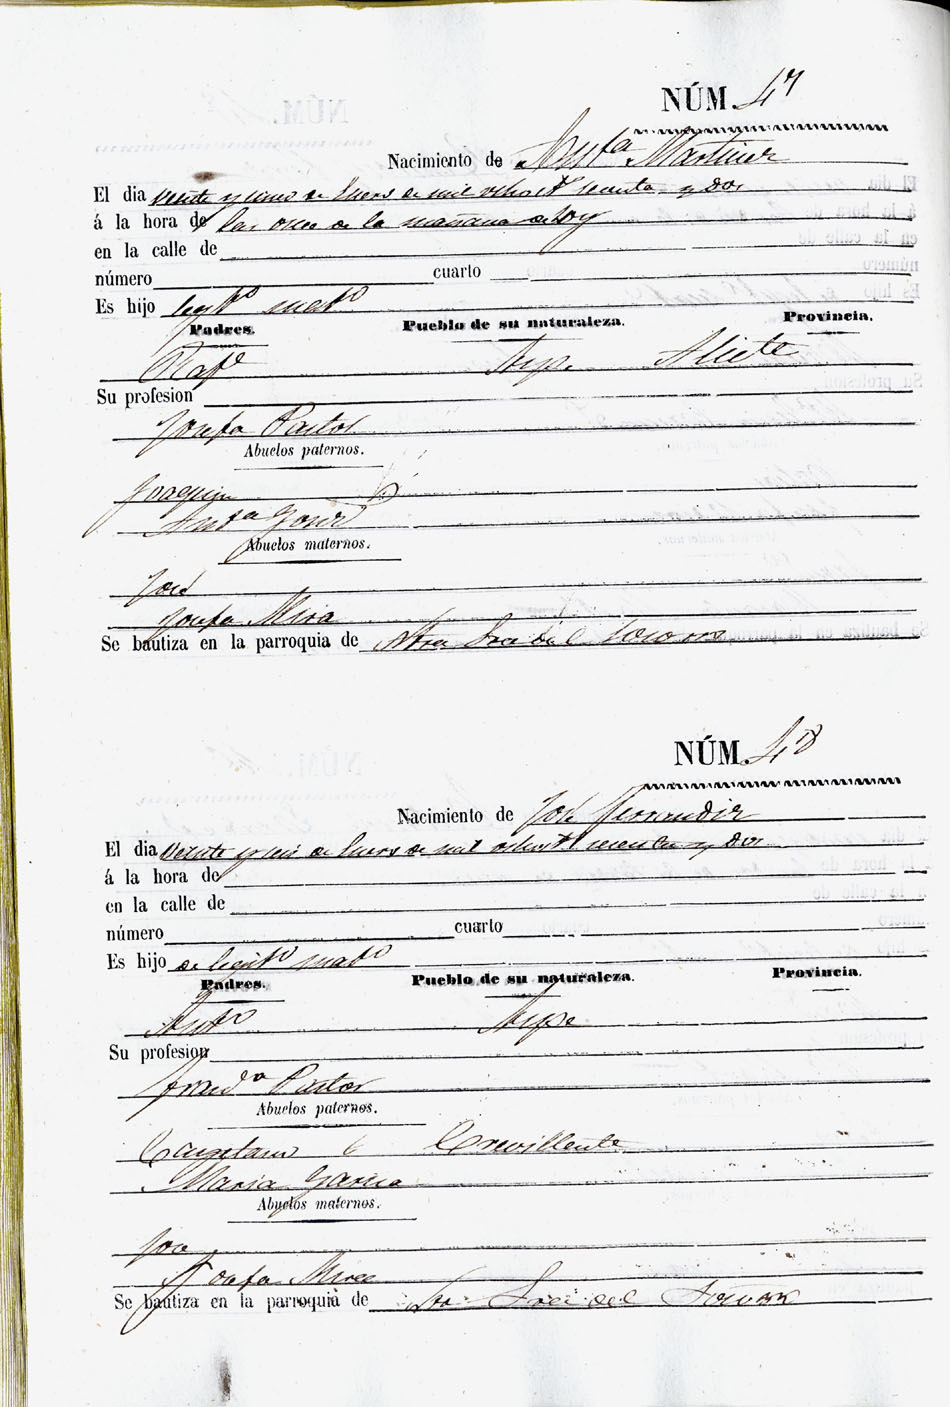 NÚM. 47
Nacimiento de Martinez
El dia veinte y uno de Enero de mil ochost sesenta y dos
á la hora de las once de la mañana de hoy
en la calle de
número cuarto
Es hijo legto mato
Padres. Pueblo de su naturaleza. Provincia.
Rafe Aspe Alicte
Su profesion
Josefa Pastor
Abuelos paternos.
Joaquin
Anta
Abuelos maternos.
José
Josefa Mira
Se bautiza en la parroquia de Ntra Sra del Socorro
NÚM. 48
Nacimiento de José Ferrandiz
El dia veinte y seis de Enero de mil ochost sesenta y dos
á la hora de
en la calle de
número cuarto
Es hijo de legto mato
Padres. Pueblo de su naturaleza. Provincia.
Anto Aspe
Su profesion
Francda Pastor
Abuelos paternos.
Cayetano Crevillente
Maria Garcia
Abuelos maternos.
Jose
Josefa Mira
Se bautiza en la parroquia de Sra del Socorro